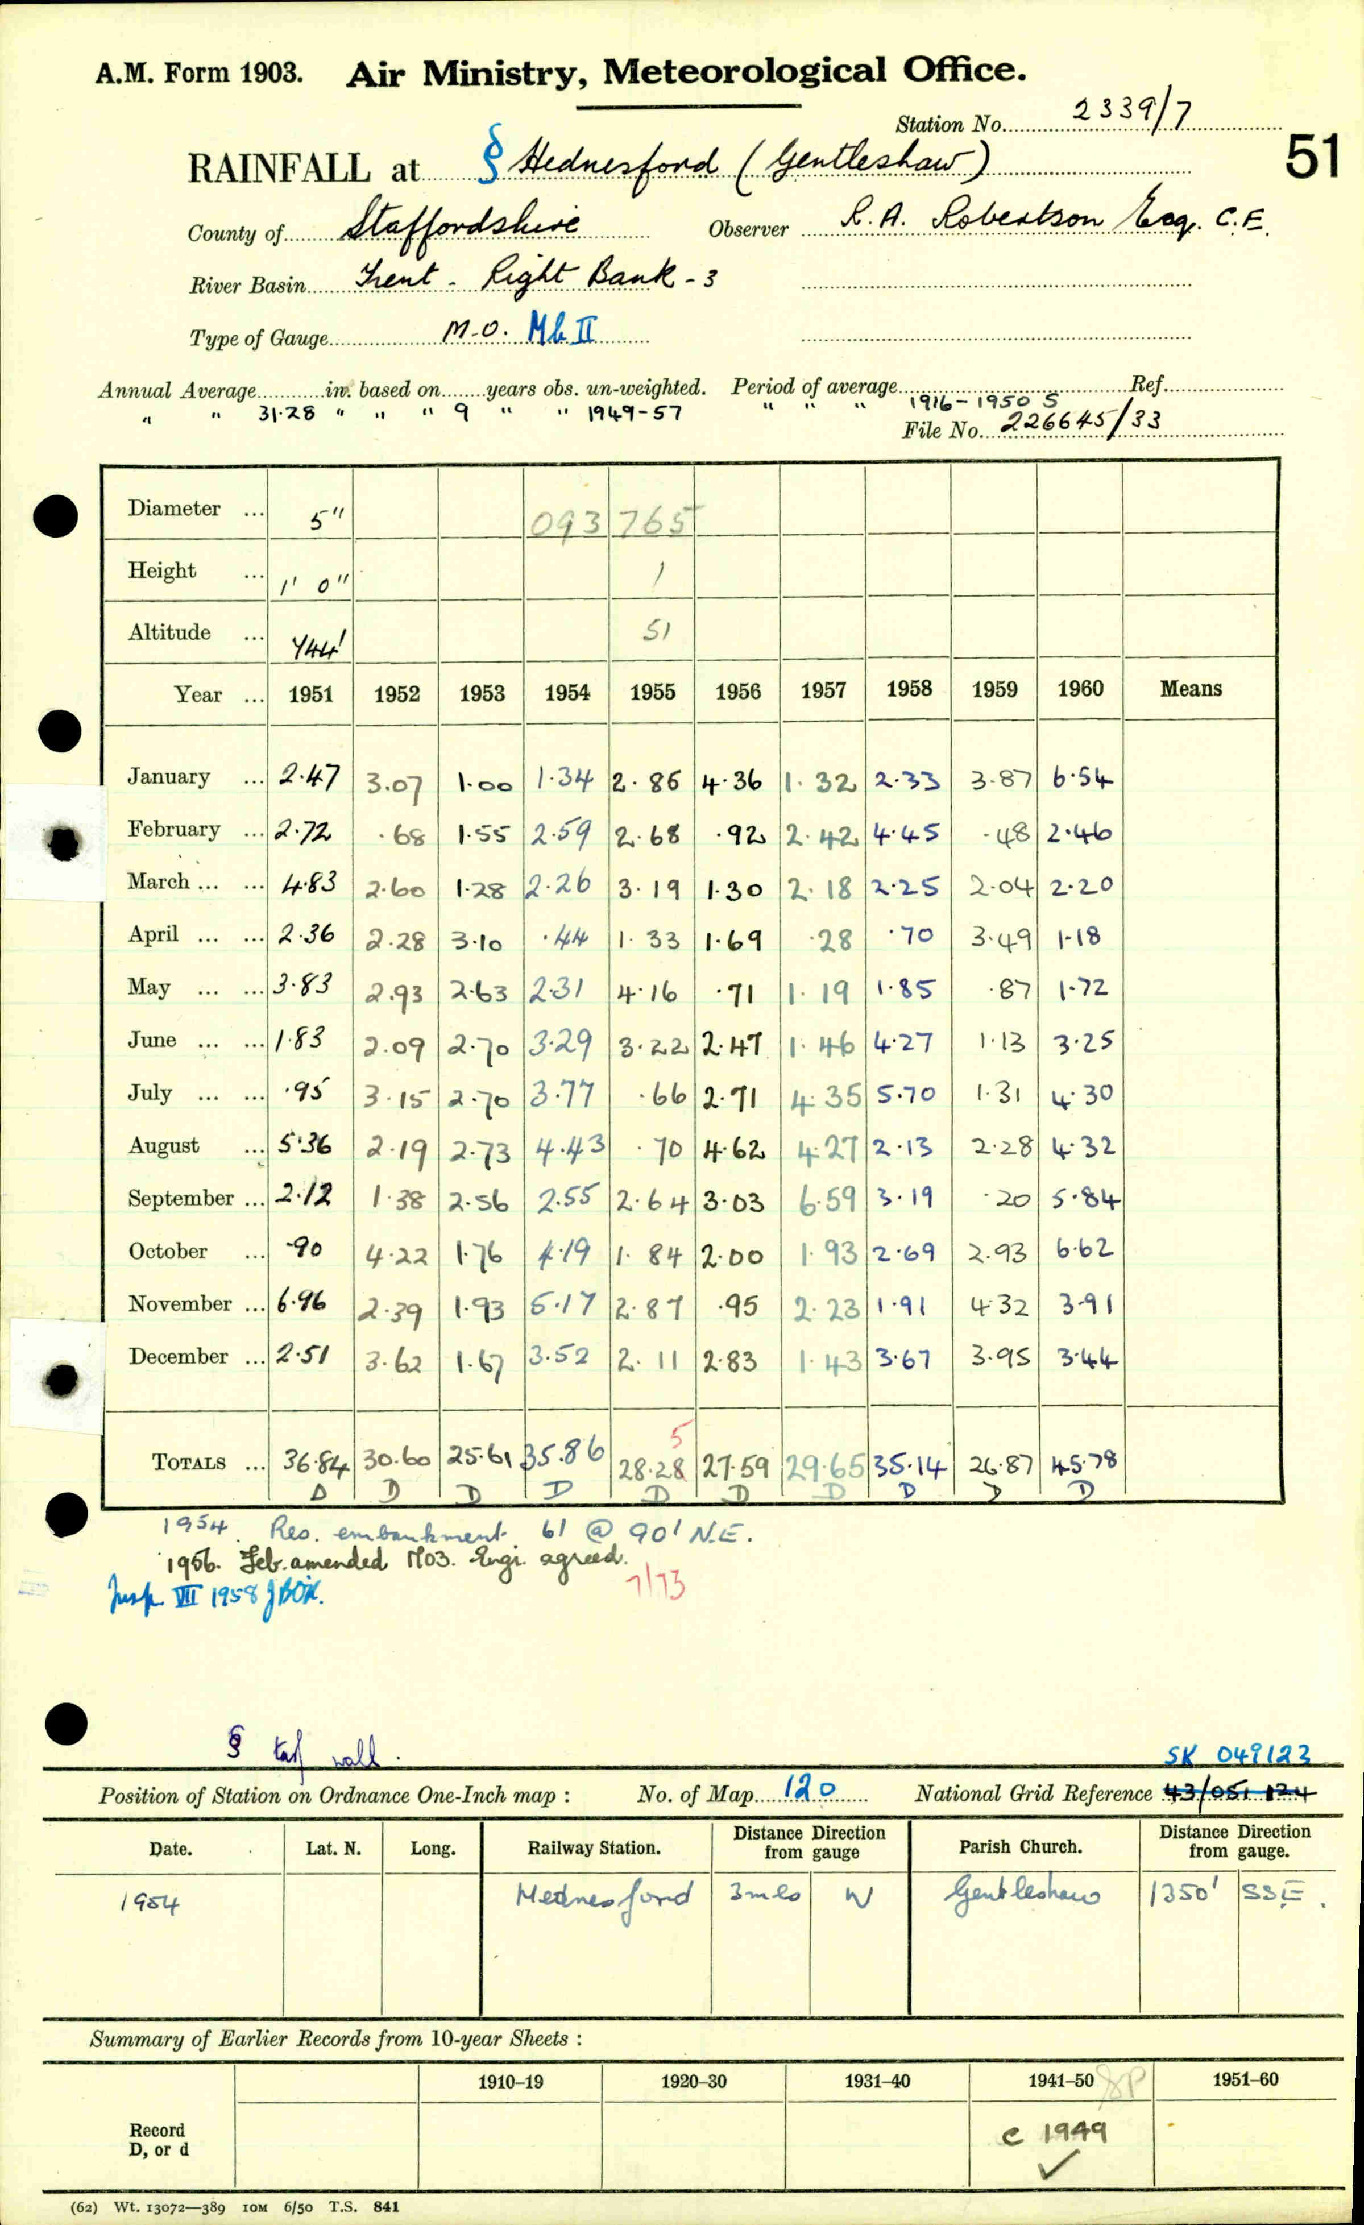 A.M. Form 1903. Air Ministry, Meteorological Office.
Station No. 2339/7
51
RAINFALL at § Hednesford (Gentleshaw)
County of Staffordshire Observer R.A. Robertson Esq. C.E.
River Basin Trent - Right Bank - 3
Type of Gauge M.O. Mk II
Annual Average in. based on years obs. un-weighted. Period of average Ref.
" " 31.28 " " " 9 " " 1949-57 " " " 1916-1950 S
File No. 226645/33
Diameter ... 5" 093 765
Height ... 1' 0" 1
Altitude ... 744' 51
Year ... 1951 1952 1953 1954 1955 1956 1957 1958 1959 1960 Means
January ... 2.47 3.07 1.00 1.34 2.86 4.36 1.32 2.33 3.87 6.54
February ... 2.72 .68 1.55 2.59 2.68 .92 2.42 4.45 .48 2.46
March ... ... 4.83 2.60 1.28 2.26 3.19 1.30 2.18 2.25 2.04 2.20
April ... ... 2.36 2.28 3.10 .44 1.33 1.69 .28 .70 3.49 1.18
May ... ... 3.83 2.93 2.63 2.31 4.16 .71 1.19 1.85 .87 1.72
June ... ... 1.83 2.09 2.70 3.29 3.22 2.47 1.46 4.27 1.13 3.25
July ... ... .95 3.15 2.70 3.77 .66 2.71 4.35 5.70 1.31 4.30
August ... 5.36 2.19 2.73 4.43 .70 4.62 4.27 2.13 2.28 4.32
September ... 2.12 1.38 2.56 2.55 2.64 3.03 6.59 3.19 .20 5.84
October ... .90 4.22 1.76 4.19 1.84 2.00 1.93 2.69 2.93 6.62
November ... 6.96 2.39 1.93 5.17 2.87 .95 2.23 1.91 4.32 3.91
December ... 2.51 3.62 1.67 3.52 2.11 2.83 1.43 3.67 3.95 3.44
5
TOTALS ... 36.84 30.60 25.61 35.86 28.28 27.59 29.65 35.14 26.87 45.78
D D D D D D D D D D
1954. Res. embankment 61 @ 90' N.E.
1956. Feb. amended MO3. Engr. agreed.
7/73
Insp. VII 1958 JBOX.
§ turf wall.
SK 049123
Position of Station on Ordnance One-Inch map : No. of Map 120 National Grid Reference 43/051 124
Date. Lat. N. Long. Railway Station. Distance Direction from gauge Parish Church. Distance Direction from gauge.
1954 Hednesford 3mls W Gentleshaw 1350' SSE.
Summary of Earlier Records from 10-year Sheets :
1910–19 1920–30 1931–40 1941–50 1951–60
Record
D, or d
c 1949
(62) Wt. 13072—389 10M 6/50 T.S. 841